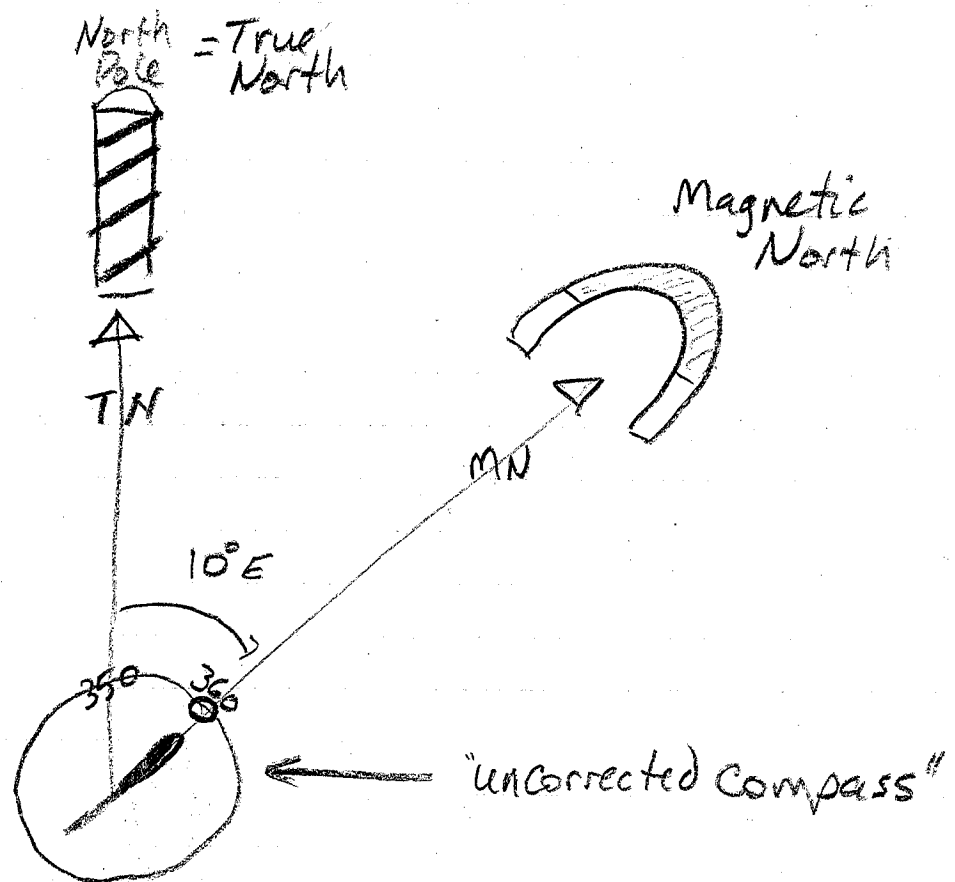 North
Pole
= True
North
Magnetic
North
TN
MN
10° E
350
360
"uncorrected Compass"